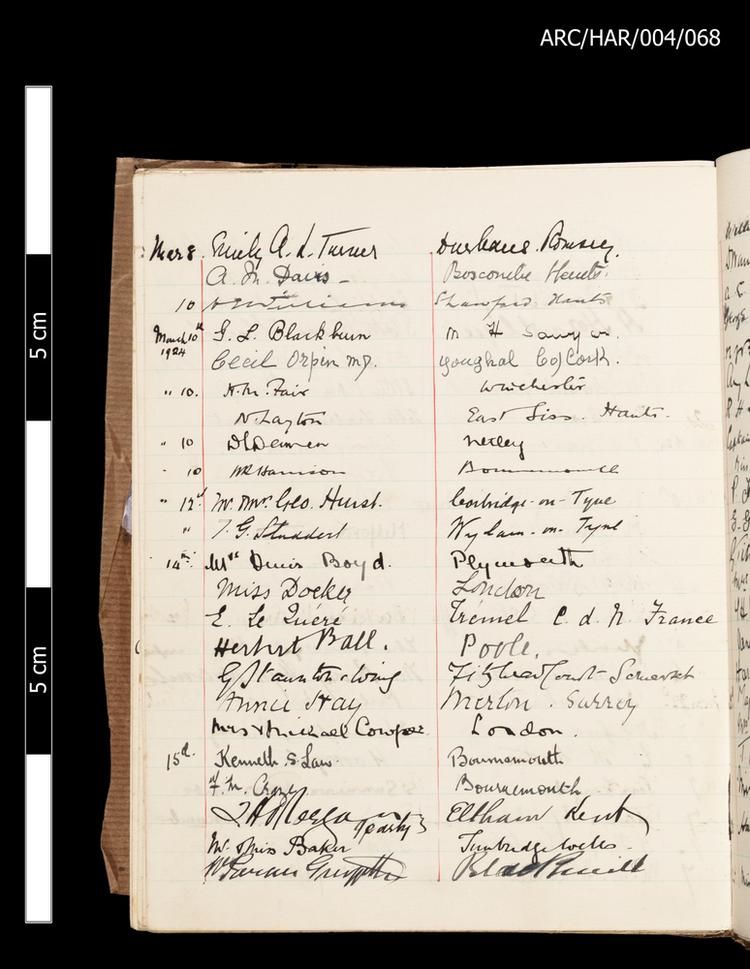 ARC/HAR/004/068
5 cm
5 cm
Mar 8. Emily A. L. Turner Romsey.
A. M. Davis - Boscombe Hants.
10 Shawford Hants
March 10th 1924 G. L. Blackburn
Cecil Orpin MD. Youghal Co/Cork.
" 10. A. M. Fair Winchester
N. Layton East Liss. Hants.
" 10 Netley
" 10 Harrison Bournemouth
" 12th Mr & Mrs Geo. Hurst. Corbridge-on-Tyne
" T. G. Studdert Wylam-on-Tyne
14th Mrs Boyd. Plymouth
Miss Docker London
E. Le Quéré Trémel C. d. N. France
Herbert Ball. Poole.
G Staunton-Wing Fitzhead Court - Somerset
Annie Hay Merton. Surrey
Mrs & Michael Cowper London.
15th Kenneth S Law. Bournemouth
F. M. Bournemouth.
party 3 Eltham Kent
Mr & Miss Baker Tunbridge Wells -
Griffiths